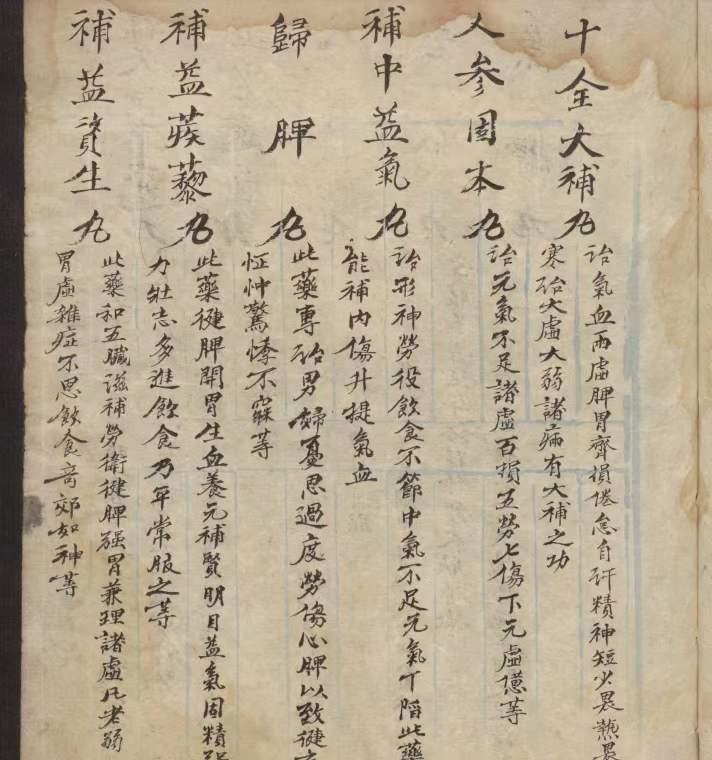 十全大補丸
治氣血兩虛脾胃齊損倦怠自汗精神短少畏熱畏
寒治大虛大弱諸病有大補之功
人參固本丸
治元氣不足諸虛百損五勞七傷下元虛憊等
補中益氣丸
治形神勞役飲食不節中氣不足元氣下陷此藥
能補内傷升提氣血
歸脾丸
此藥專治男婦憂思過度勞傷心脾以致健
怔忡驚悸不寐等
補益蒺藜丸
此藥健脾開胃生血養元補腎明目益氣固精
力壯志多進飲食乃平常服之等
補益資生丸
此藥和五臟滋補勞衛健脾强胃兼理諸虛凡老弱
胃虛雜症不思飲食奇効如神等